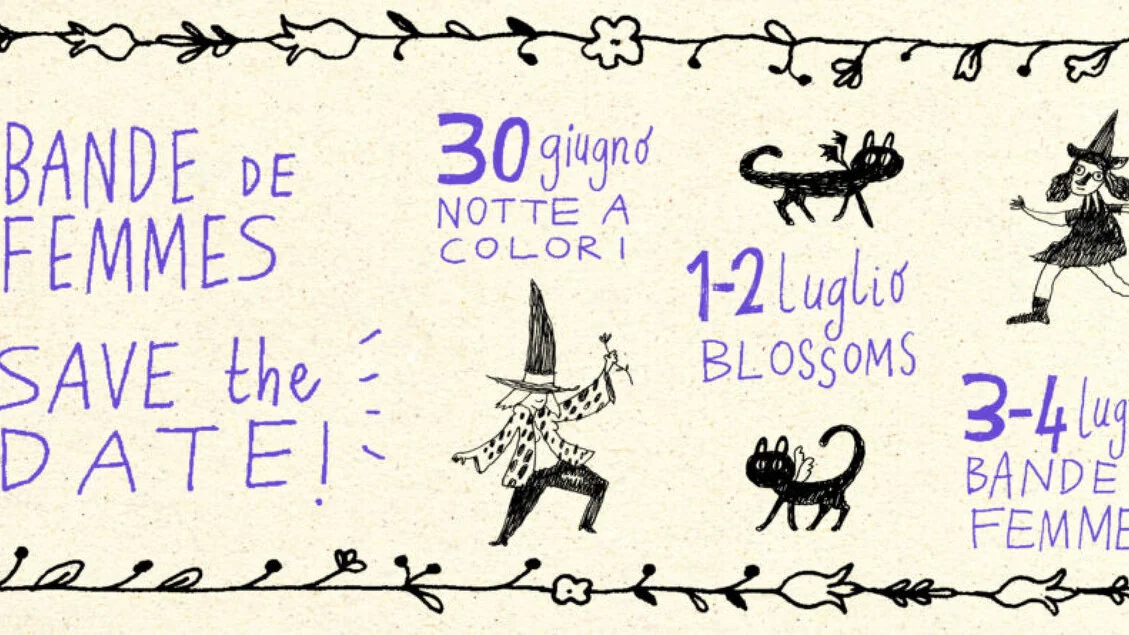 BANDE DE
FEMMES
SAVE the
DATE!
30 giugno
NOTTE A
COLORI
1-2 luglio
BLOSSOMS
3-4 lug
BANDE
FEMME